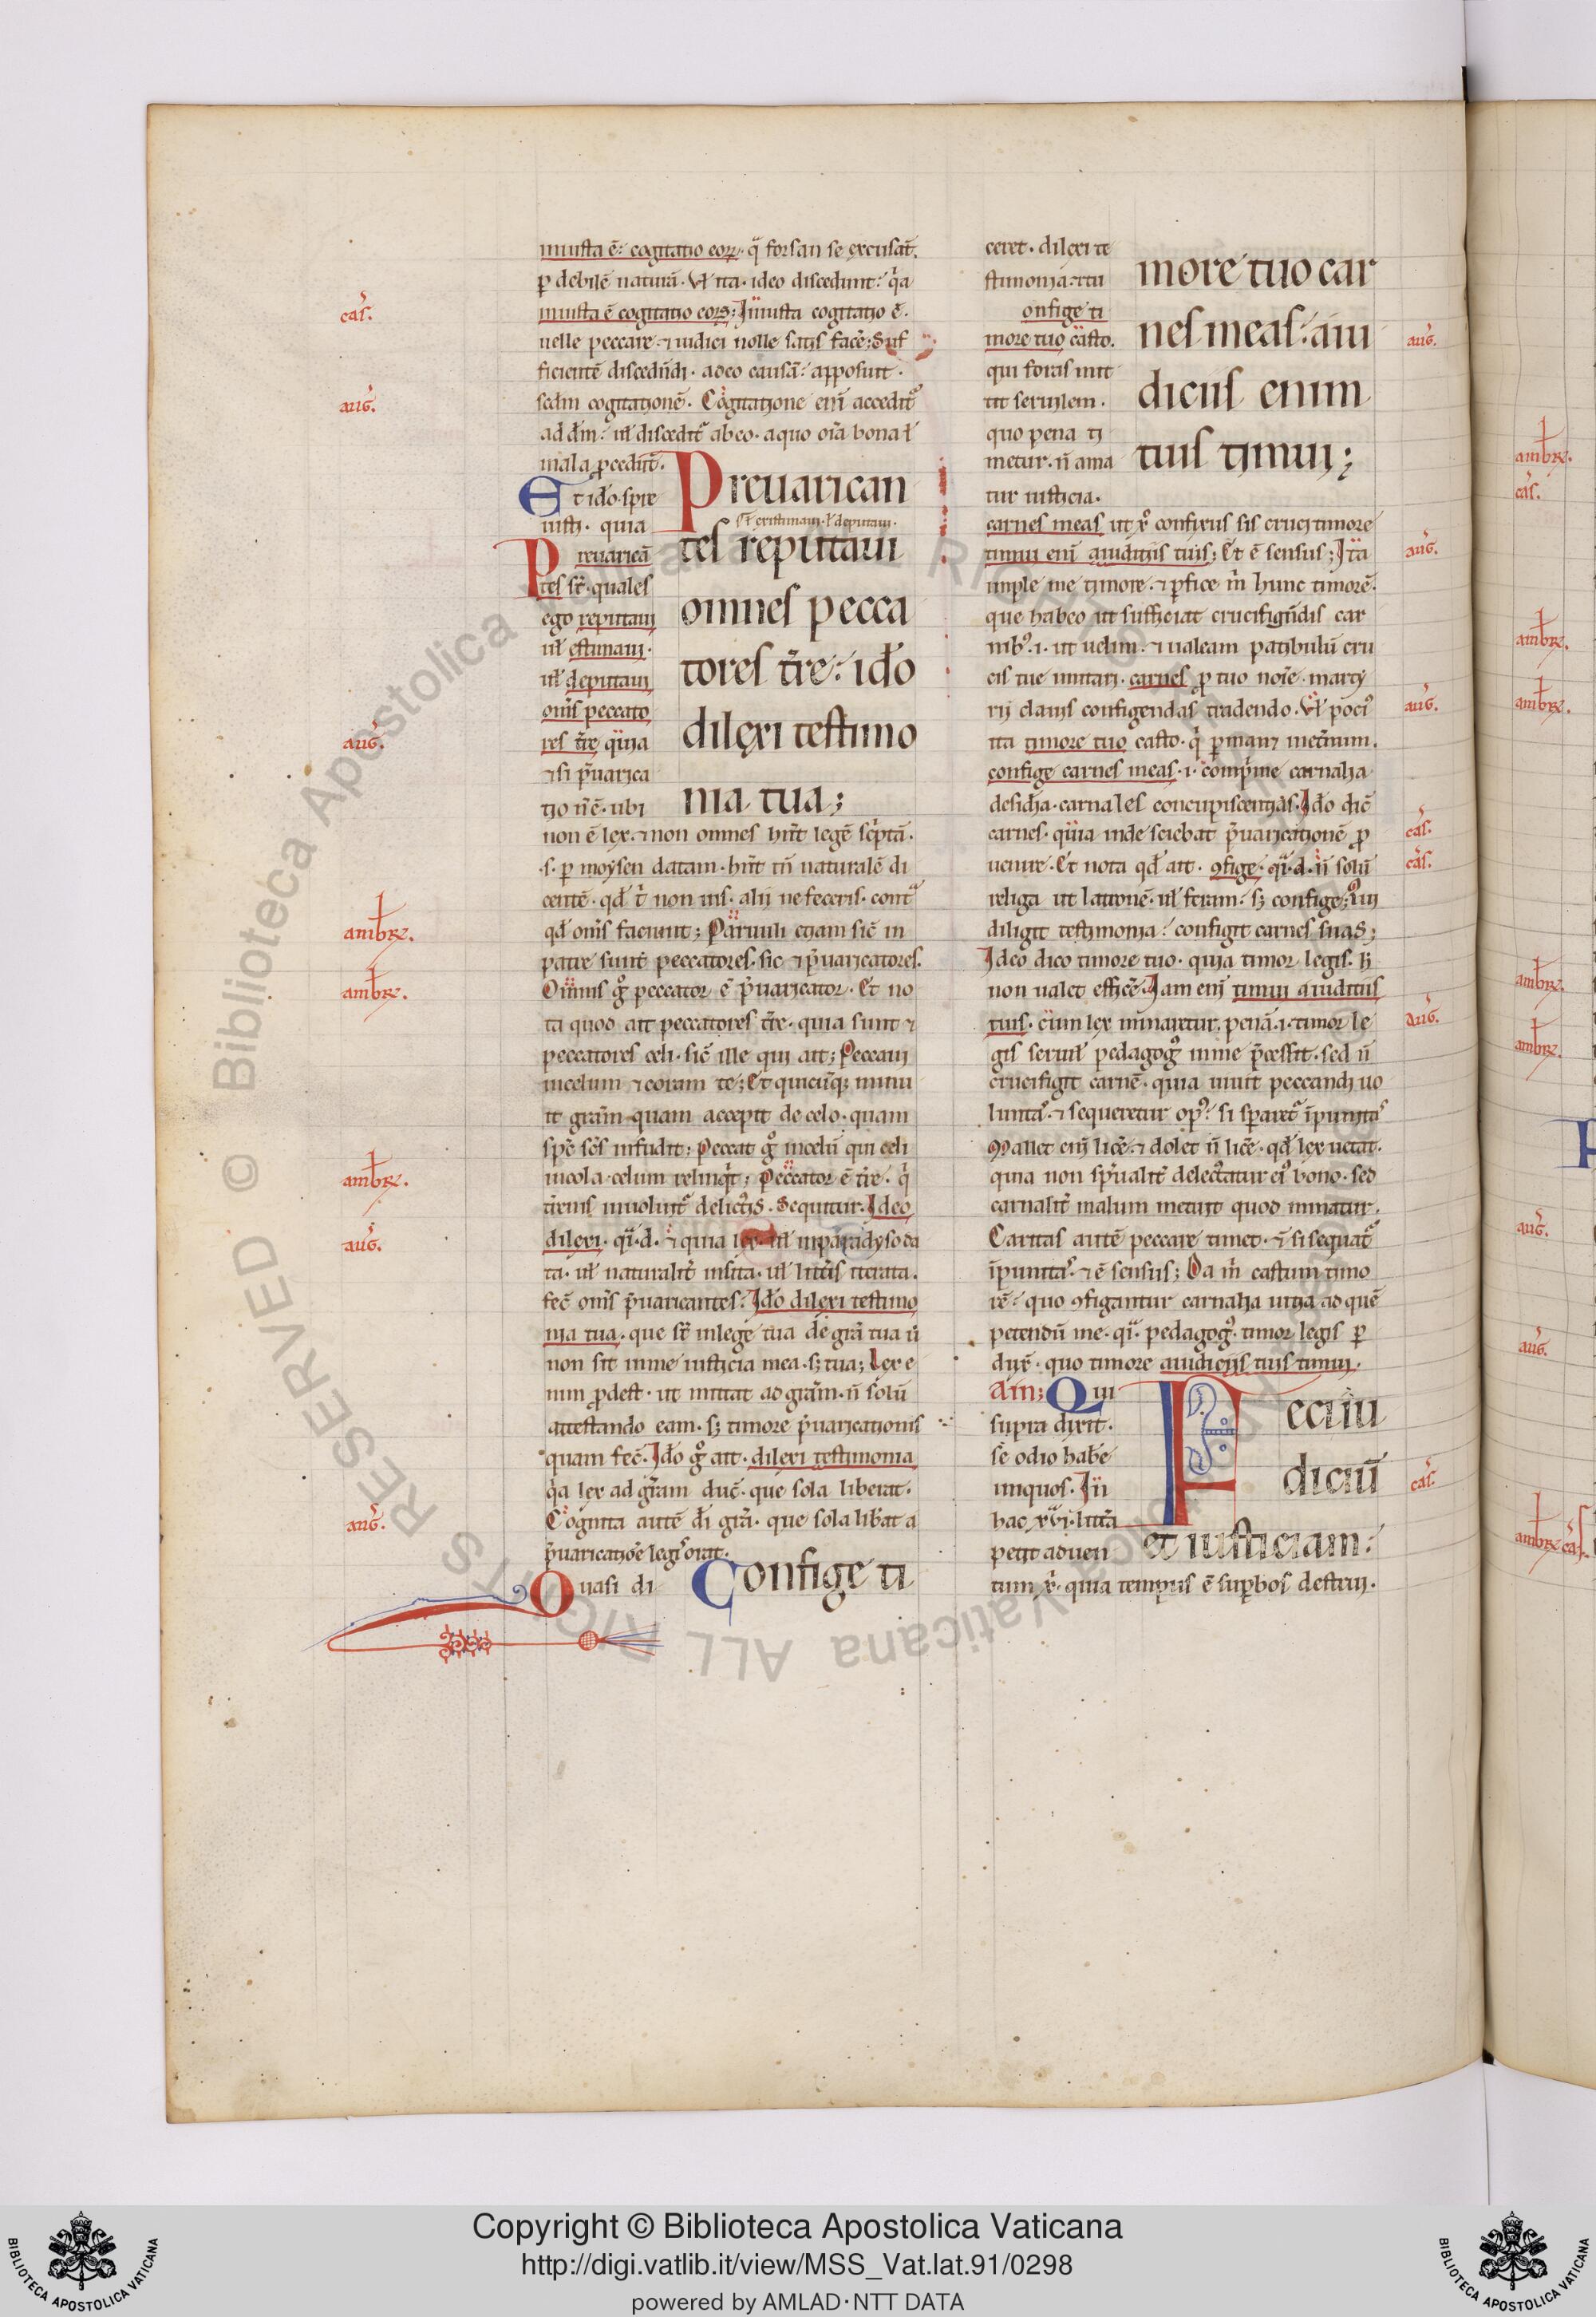 iniusta ē: cogitatio eoꝝ. q̄ forsan se excusāt.
ꝑ debilē naturā. Vł ita. ideo discedunt: q̇a
iniusta ē cogitatio eoꝝ; Iniusta cogitatio ē.
uelle peccare. ⁊ iudici nolle satis facē; Suf
ficientē discedn̄di. adeo causā: apposuit.
sedm cogitationē. Cogitatione eni᷑ accedit᷑
ad dm̄: uł discedit᷑ ab eo. a quo oīa bona ł
mala ꝓcedūt.
Et ido. spre
uisti. quia
Preuaricā
tes st̄. quales
ego reputaui
uł estimaui.
uł deputaui
om̄s peccato
res tr̄e quia
⁊ si p̄uarica
tio n̄ ē. ubi
Preuarican
ł estimaui. ł deputaui.
tes reputaui
omnes pecca
tores tr̄e: ido
dilexi testimo
nia tua;
non ē lex. ⁊ non omnes hn̄t legē sc̄ptā.
.s. ꝑ moysen datam. hn̄t tn̄ naturalē di
centē. qd̄ t̄ non uis. alii ne feceris. contᵃ
qd̄ om̄s faciunt; Paruuli etiam sic̄ in
patre sunt peccatores. sic ⁊ p̄uaricatores.
Omnis g° peccator ē p̄uaricator. Et no
ta quod ait peccatores tr̄e. quia sunt ⁊
peccatores celi. sic̄ ille qui ait; Peccaui
in celum ⁊ coram te; Et quicūq; minu
it grām quam accepit de celo. quam
spc̄ sc̄s infudit; Peccat g° in celū qui celi
incola. celum relinq̇t; Peccator ē tr̄e. q̇
tr̄enis inuoluit᷑ delictis. Sequitur. Ideo
dilexi. q̄i. d. ⁊ quia lex. uł in paradyso da
ta. uł naturalit᷑ insita. uł litt̄is iterata.
fec̄ om̄s p̄uaricantes: Ido dilexi testimo
nia tua. que st̄ in lege tua de grā tua ū
non sit in me iusticia mea. s; tua; Lex e
nim ꝓdest. ut mittat ad grām. n̄ solū
attestando eam. s; timore p̄uaricationis
quam fec̄. Ido g° ait. dilexi testimonia
q̇a lex ad grām duc̄. que sola liberat.
Cognita autē dī grā. que sola libāt a
p̄uaricatiōe legis orat.
Quasi di
Confige ti
ceret. dilexi te
stimonia. tu
onfige ti
more tuo casto.
qui foras mit
tit seruilem.
quo pena ti
metur. n̄ ama
tur iusticia.
more tuo car
nes meas: a iu
diciis enim
tuis timui;
carnes meas ut x° confixus sis cruci timore
timui eni᷑ a iudiciis tuis; Et ē sensus; Ita
imple me timore. ⁊ ꝑfice m̄ hunc timorē.
que habeo ut sufficiat crucifign̄dis car
nib᷒. i. ut uelim. ⁊ ualeam patibulū cru
cis tue imitari. carnes ꝓ tuo noīe. marty
rii clauis configendas tradendo. Vł poci᷒
ita timore tuo casto. q̇ ꝑmanȝ in et̄num.
confige carnes meas. i. comp̄me carnalia
desidīa. carnales concupiscentias. Ido dic̄
carnes. quia inde sciebat p̄uaricationē ꝓ
uenire. Et nota qd̄ ait. ꝯfige. q̄i. d. n̄ solū
religa ut latronē. uł feram: s; confige; Qui
diligit testimonia: configit carnes suas;
Ideo dico timore tuo. quia timor legis. h̄
non ualet efficē. Iam eni᷑ timui a iudiciis
tuis. cum lex minaretur. penā. i. timor le
gis seruił pedagog᷒ in me p̄cessit. sed n̄
crucifigit carnē. quia uiuit peccandi uo
luntas. ⁊ sequeretur op᷒: si spāret᷑ īpunitas
Mallet eni᷑ licē. ⁊ dolet n̄ licē. qd̄ lex uetat.
quia non sp̄ualit᷑ delectatur ei᷒ bono. sed
carnalit᷑ malum metuit quod minatur.
Caritas autē peccare timet. ⁊ si sequat᷑
īpunitas. ⁊ ē sensus; Da m̄ castum timo
rē: quo ꝯfigantur carnalia uitia ad quē
petendū me. q̄i. pedagog᷒. timor legis ꝑ
dux̄. quo timore a iudiciis tuis timui.
Ain; Qui
supra dixit.
se odio habē
iniquos. In
hac xvi. litt̄a
petit aduen
Feci iu
diciū
et iusticiam:
tum x̄. quia tempus ē suꝑbos destrui.
cas.
aug.
aug.
ambr.
ambr.
ambr.
aug.
aug.
aug.
aug.
aug.
cas.
cas.
aug.
cas.
ambr.
cas.
ambr.
ambr.
ambr.
ambr.
aug.
aug.
ambr. cas.
© Biblioteca Apostolica Vaticana ALL RIGHTS RESERVED
Copyright © Biblioteca Apostolica Vaticana
http://digi.vatlib.it/view/MSS_Vat.lat.91/0298
powered by AMLAD·NTT DATA
BIBLIOTECA APOSTOLICA VATICANA
BIBLIOTECA APOSTOLICA VATICANA